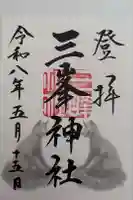 登拝
三峯神社
令和八年五月十五日